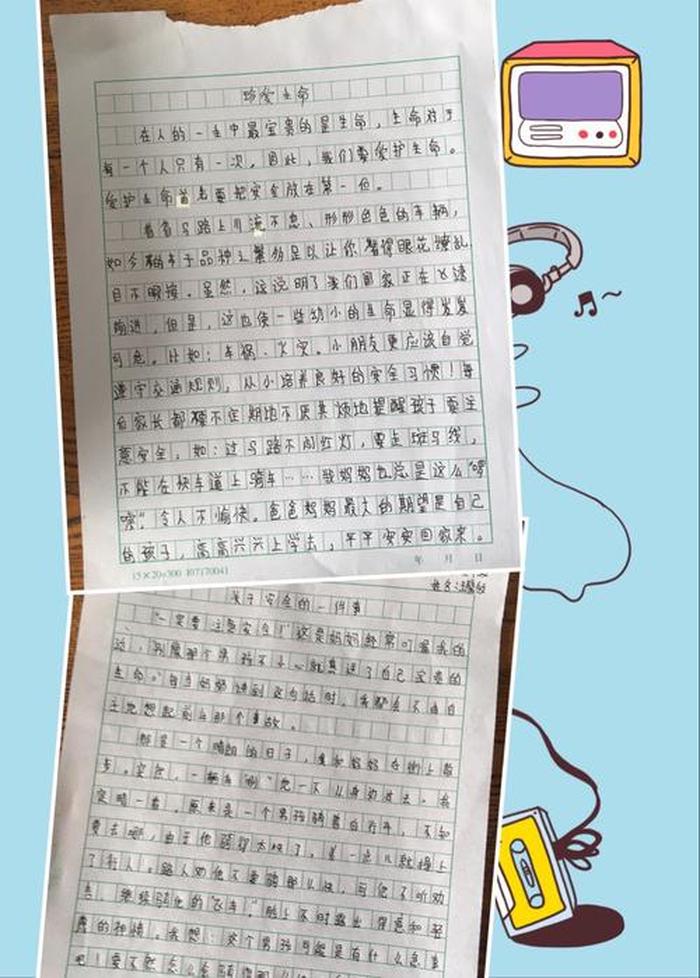 珍爱生命
在人的一生中最宝贵的是生命，生命对于
每一个人只有一次，因此，我们要爱护生命。
爱护生命首先要把安全放在第一位。
看着马路上川流不息、形形色色的车辆，
如今轿车子品种之繁多足以让你看得眼花缭乱
目不暇接。显然，这说明了我们国家正在飞速
前进，但是，这也使一些幼小的生命显得岌岌
可危。比如：车祸、火灾。小朋友更应该自觉
遵守交通规则，从小培养良好的安全习惯！每
位家长都不定期地不厌其烦地提醒孩子要注
意安全，如：过马路不闯红灯，要走斑马线，
不能在快车道上骑车……我妈妈也总是这么“啰
嗦”，令人不愉快。爸爸妈妈最大的期望是自己
的孩子，高高兴兴上学去，平平安安回家来。
15×20=300 年 月 日
姓名：
关于安全的一件事
“一定要注意安全！”这是妈妈经常叮嘱我的
话，别像那个男孩不小心就丢了自己宝贵的
生命。”每当妈妈讲到这句话时，我都会不由自
主地想起前的那个事故。
那是一个晴朗的日子，我和妈妈在街上散
步。突然，一辆车“唰”地一下从身边过去。我
定睛一看，原来是一个男孩骑着自行车，不知
要去哪，由于他骑得太快了，差一点儿就撞上
了行人。路人劝他不要骑那么快，可他不听劝
告，继续骑他的“飞车”，脸上不时露出得意和
的神情。我想：这个男孩可能是有什么急事
吧！要不然怎么会骑得那么